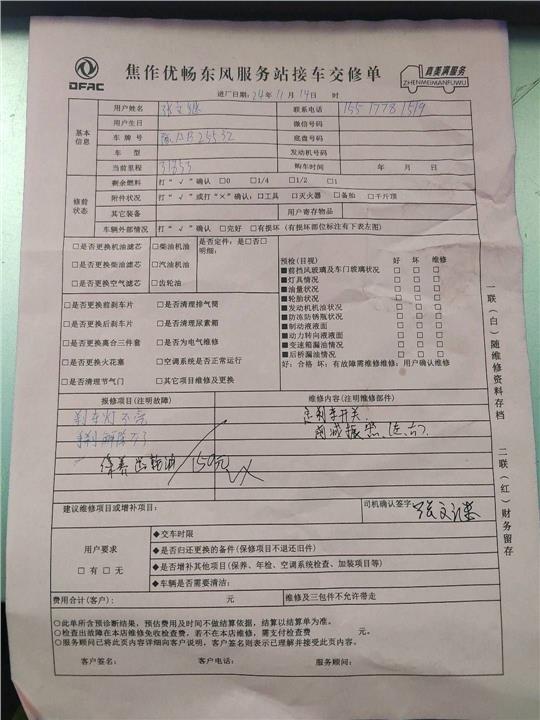 DFAC
焦作优畅东风服务站接车交修单
真美满服务
ZHENMEIMANFUWU
进厂日期：24年11月14日 时
基本信息
用户姓名
联系电话 15517781519
用户生日 微信号码
车牌号 豫AB25532 底盘号码
车型 发动机号码
当前里程 31353 购车时间 年 月 日
修前状态
剩余燃料 打“√”确认 □0 □1/4 □1/2 □1
附件状况 打“√”或打“×”确认：□工具 □灭火器 □备胎 □千斤顶
其它装备 用户寄存物品
车辆外部情况 打“√”确认 □完好 □有损坏（有损坏部位标注有下表左图）
□是否更换机油滤芯 □柴油机油 是否定件：是□否□
明细：
□是否更换柴油滤芯 □汽油机油
□是否更换空气滤芯 □齿轮油
□是否更换前刹车片 □是否清理排气筒
□是否更换后刹车片 □是否清理尿素箱
□是否更换离合三件套 □是否为电气维修
□是否更换火花塞 □空调系统是否正常运行
□是否清理节气门 □其它项目维修及更换
预检（目视） 好 坏 维修
■前挡风玻璃及车门玻璃状况 □ □ □
■灯具情况 □ □ □
■油量状况 □ □ □
■轮胎状况 □ □ □
■发动机机油状况 □ □ □
■防冻防锈瓶状况 □ □ □
■制动液液面 □ □ □
■动力转向液液面 □ □ □
■变速箱漏油情况 □ □ □
■后桥漏油情况 □ □ □
好：合格 坏：有故障需维修维修：用户确认维修
报修项目（注明故障） 维修内容（注明维修部件）
刹车灯不亮
手刹解除不了
刹车开关
保养齿轮油/150元
建议维修项目或增补项目： 司机确认签字
用户要求
□有□无
◆交车时限
◆是否归还更换的备件（保修项目不退还旧件）
◆是否增补其他项目（保养、年检、空调系统检查、加装项目等）
◆车辆是否需要清洁：
费用合计（客户）： 元 维修及三包件不允许带走
◎此单所含预诊断结果，预估费用及时间不做结算依据，结算以结算单为准。
◎检查出故障在本店维修免收检查费，若不在本店维修，需支付检查费 元。
◎服务顾问已将此页内容详细向客户说明，客户签名则表示已理解并接受此页内容。
客户签名： 客户电话： 服务顾问：
一联（白）随维修资料存档
二联（红）财务留存